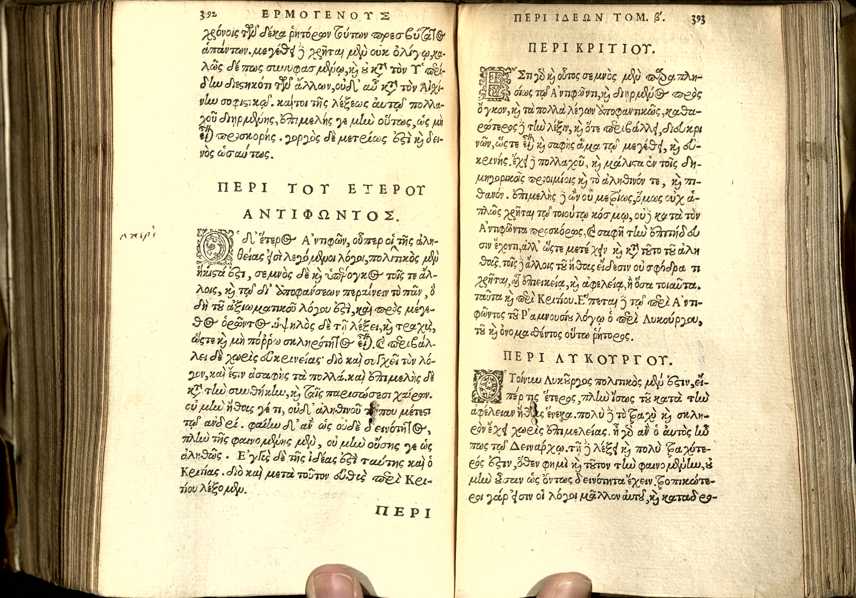 392 ΕΡΜΟΓΕΝΟΥΣ
χρόνοις τῶν δέκα ῥητόρων τούτων πρεσβύτατος
ἁπάντων. μεγέθει δὲ χρῆται μὲν οὐκ ὀλίγῳ, καλῶς
δέ πως συνυφασμένῳ, καὶ οὐ κατὰ τὸν Ὑπερείδην
διεστηκότι τῶν ἄλλων, οὐδ' αὖ κατὰ τὸν Αἰσχίνην
σοφιστικῷ. καίτοι τῆς λέξεως αὐτῷ πολλαχοῦ
διῃρμένης, ἐπιμελής γε μὴν οὕτως, ὡς μὴ
εἶναι προσκορής. γοργὸς δὲ μετρίως ἐστὶ καὶ δεινὸς
ὡσαύτως.
ΠΕΡΙ ΤΟΥ ΕΤΕΡΟΥ
ΑΝΤΙΦΩΝΤΟΣ.
Ὁ δ' ἕτερος Ἀντιφῶν, οὗπερ οἱ τῆς ἀληθείας
εἰσὶ λεγόμενοι λόγοι, πολιτικὸς μὲν
ἥκιστά ἐστι, σεμνὸς δὲ καὶ ὑπέρογκος τοῖς τε ἄλλοις,
καὶ τῷ δι' ἀποφάνσεων περαίνειν τὸ πᾶν, ὃ
δὴ τοῦ ἀξιωματικοῦ λόγου ἐστὶ, καὶ πρὸς μέγεθος
ὁρῶντος. ὑψηλὸς δὲ τῇ λέξει, καὶ τραχὺς,
ὥστε καὶ μὴ πόρρω σκληρότητος εἶναι. καὶ περιβάλλει
δὲ χωρὶς εὐκρινείας· διὸ καὶ συγχεῖ τὸν λόγον,
καὶ ἔστιν ἀσαφὴς τὰ πολλά. καὶ ἐπιμελὴς δὲ
κατὰ τὴν συνθήκην, καὶ ταῖς παρισώσεσι χαίρων.
οὐ μὴν ἤθους γέ τι, οὐδ' ἀληθινοῦ τύπου μέτεστι
τῷ ἀνδρί. φαίην δ' ἂν ὡς οὐδὲ δεινότητος,
πλὴν τῆς φαινομένης μὲν, οὐ μὴν οὔσης γε ὡς
ἀληθῶς. Ἐγγὺς δὲ τῆς ἰδέας ἐστὶ ταύτης καὶ ὁ
Κριτίας. διὸ καὶ μετὰ τοῦτον εὐθὺς περὶ Κριτίου
λέξομεν.
ΠΕΡΙ
ΠΕΡΙ ΙΔΕΩΝ ΤΟΜ. β'. 393
ΠΕΡΙ ΚΡΙΤΙΟΥ.
Ἔστι δὴ καὶ οὗτος σεμνὸς μὲν παραπλησίως
τῷ Ἀντιφῶντι, καὶ διῃρμένος πρὸς
ὄγκον, καὶ τὰ πολλὰ λέγων ἀποφαντικῶς, καθαρώτερος
δὲ τὴν λέξιν, καὶ ὅτε περιβάλλει, διευκρινῶν,
ὥστε εἶναι καὶ σαφὴς ἅμα τῷ μεγέθει, καὶ εὐκρινής.
ἔχει δὲ πολλαχοῦ, καὶ μάλιστα ἐν τοῖς δημηγορικοῖς
προοιμίοις καὶ τὸ ἀληθινόν τε, καὶ πιθανόν.
ἐπιμελὴς δὲ ὢν οὐ μετρίως, ὅμως οὐχ ἁπλῶς
χρῆται τῷ τοιούτῳ κόσμῳ, οὐδὲ κατὰ τὸν
Ἀντιφῶντα προσκόρως, καὶ σαφῆ τὴν ἐπιτήδευσιν
ἔχοντι, ἀλλ' ὥστε μετέχειν καὶ κατὰ τοῦτο τοῦ ἀληθοῦς.
τοῖς δὲ ἄλλοις τοῦ ἤθους εἴδεσιν οὐ σφόδρα τι
χρῆται, οἷον ἐπιεικείᾳ, καὶ ἀφελείᾳ, ἢ ὅσα τοιαῦτα.
ταῦτα καὶ περὶ Κριτίου. Ἕπεται δὲ τῷ περὶ Ἀντιφῶντος
τοῦ Ῥαμνουσίου λόγῳ ὁ περὶ Λυκούργου,
τοῦ καὶ ὀνομασθέντος οὕτω ῥήτορος.
ΠΕΡΙ ΛΥΚΟΥΡΓΟΥ.
Ὁ τοίνυν Λυκοῦργος πολιτικὸς μέν ἐστιν, εἴπερ
τις ἕτερος, πλὴν ἴσως τὰ κατὰ τὴν
ἀφέλειαν ἤθους ἕνεκα. πολὺ δὲ τὸ τραχὺ καὶ σκληρὸν
ἔχει χωρὶς ἐπιμελείας. ἦ γὰρ ἂν ὁ αὐτὸς ἦν
πως τῷ Δεινάρχῳ. τῇ δὲ λέξει καὶ πολὺ τραχύτερός
ἐστιν, ὅθεν φημὶ καὶ τοῦτον τὴν φαινομένην, οὐ
μὴν οὖσαν ὡς ὄντως δεινότητα ἔχειν. τροπικώτεροι
γάρ εἰσιν οἱ λόγοι μᾶλλον αὐτοῦ, καὶ καταδρο-